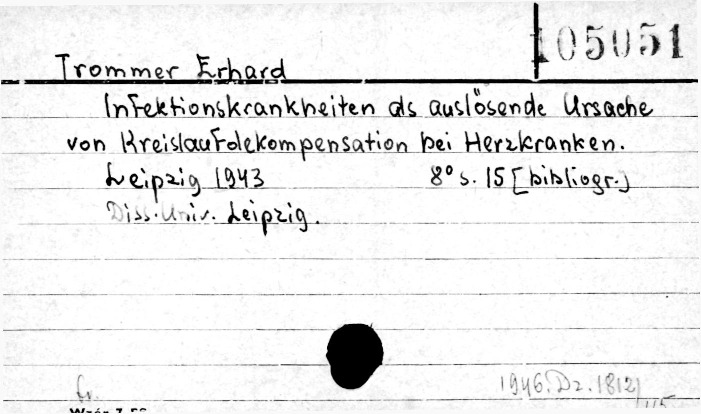 105051
Trommer Erhard
Infektionskrankheiten als auslösende Ursache
von Kreislaufdekompensation bei Herzkranken.
Leipzig 1943 8° s. 15 [bibliogr.]
Diss. Univ. Leipzig.
1946.Dz.1812